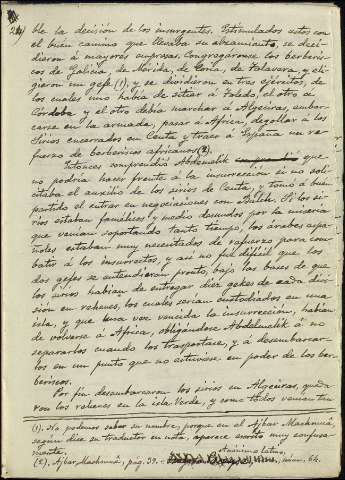 ble la decisión de los insurgentes. Estimulados estos con
el buen camino que llevaba su alzamiento, se deci-
dieron á mayores empresas. Congregáronse los berberis-
cos de Galicia, de Mérida, de Coria, de Talavera y eli-
gieron un gefe (1), y se dividieron en tres ejércitos, de
los cuales uno había de sitiar á Toledo, el otro á
Córdoba y el otro debía marchar á Algeciras, embar-
carse en la armada, pasar á Africa, degollar á los
Sirios encerrados en Ceuta y traer á España un re-
fuerzo de berberiscos africanos (2).
Entonces comprendió Abdelmelik que
no podría hacer frente á la insurrección si no soli-
citaba el auxilio de los sirios de Ceuta, y tomó á buen
partido el entrar en negociaciones con Balch. Si los si-
rios estaban famélicos y medio desnudos por la miseria
que venían soportando tanto tiempo, los árabes espa-
ñoles estaban muy necesitados de refuerzo para com-
batir á los insurrectos, y así no fué difícil que los
dos gefes se entendieran pronto, bajo las bases de que
los sirios habían de entregar diez gefes de cada divi-
sión en rehenes, los cuales serían custodiados en una
isla, y que una vez vencida la insurrección, habían
de volverse á Africa, obligándose Abdelmelik á no
separarlos cuando los trasportase, y á desembarcar-
los en un punto que no estuviese en poder de los ber-
beriscos.
Por fin desembarcaron los sirios en Algeciras, queda-
ron los rehenes en la isla Verde, y como todos venían tan
(1). No podemos saber su nombre, porque en el Ajbar Machmuâ,
según dice su traductor en nota, aparece escrito muy confusa-
mente.
(2). Ajbar Machmuâ, pág. 39. Anónimo latino, núm. 64.